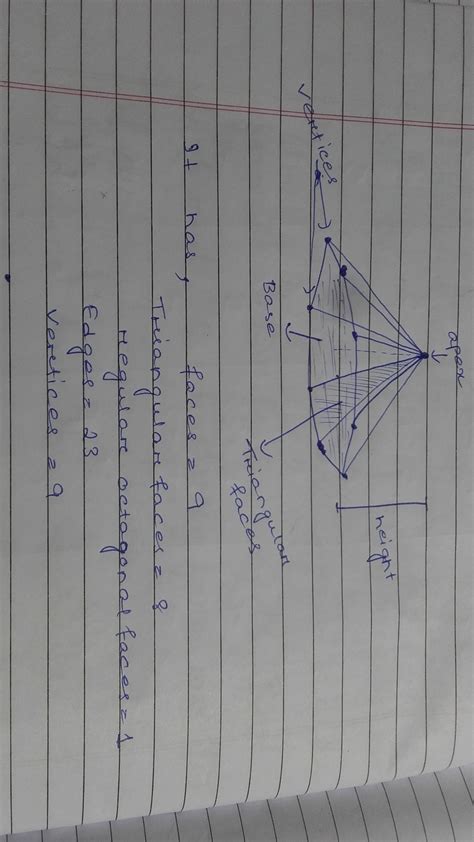 apex
vertices
height
Base
Triangular
faces
It has, faces = 9
Triangular faces = 8
regular octagonal faces = 1
Edges = 23
vertices = 9